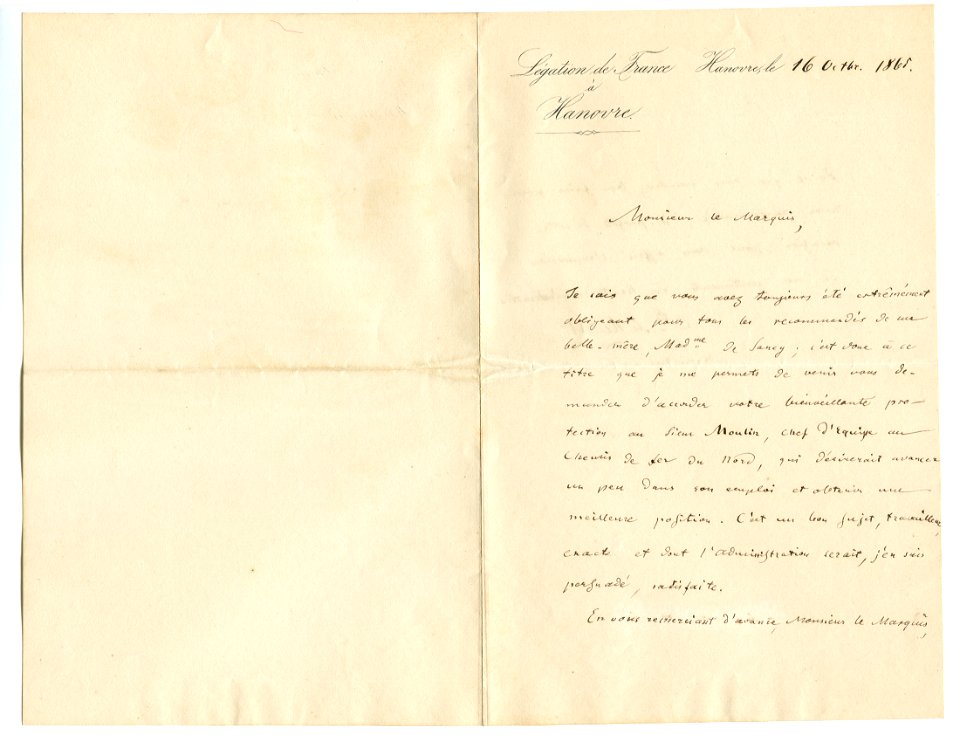 Légation de France Hanovre, le 16 Octbr. 1865.
à
Hanovre.
Monsieur le Marquis,
Je sais que vous avez toujours été extrêmement
obligeant pour tous les recommandés de ma
belle-mère, Mad^me de Sancy ; c'est donc à ce
titre que je me permets de venir vous de-
mander d'accorder votre bienveillante pro-
tection au Sieur Moulin, chef d'équipe au
Chemin de fer du Nord, qui désirerait avancer
un peu dans son emploi et obtenir une
meilleure position. C'est un bon sujet, travailleur,
exact et dont l'administration serait, j'en suis
persuadé, satisfaite.
En vous remerciant d'avance, Monsieur le Marquis,